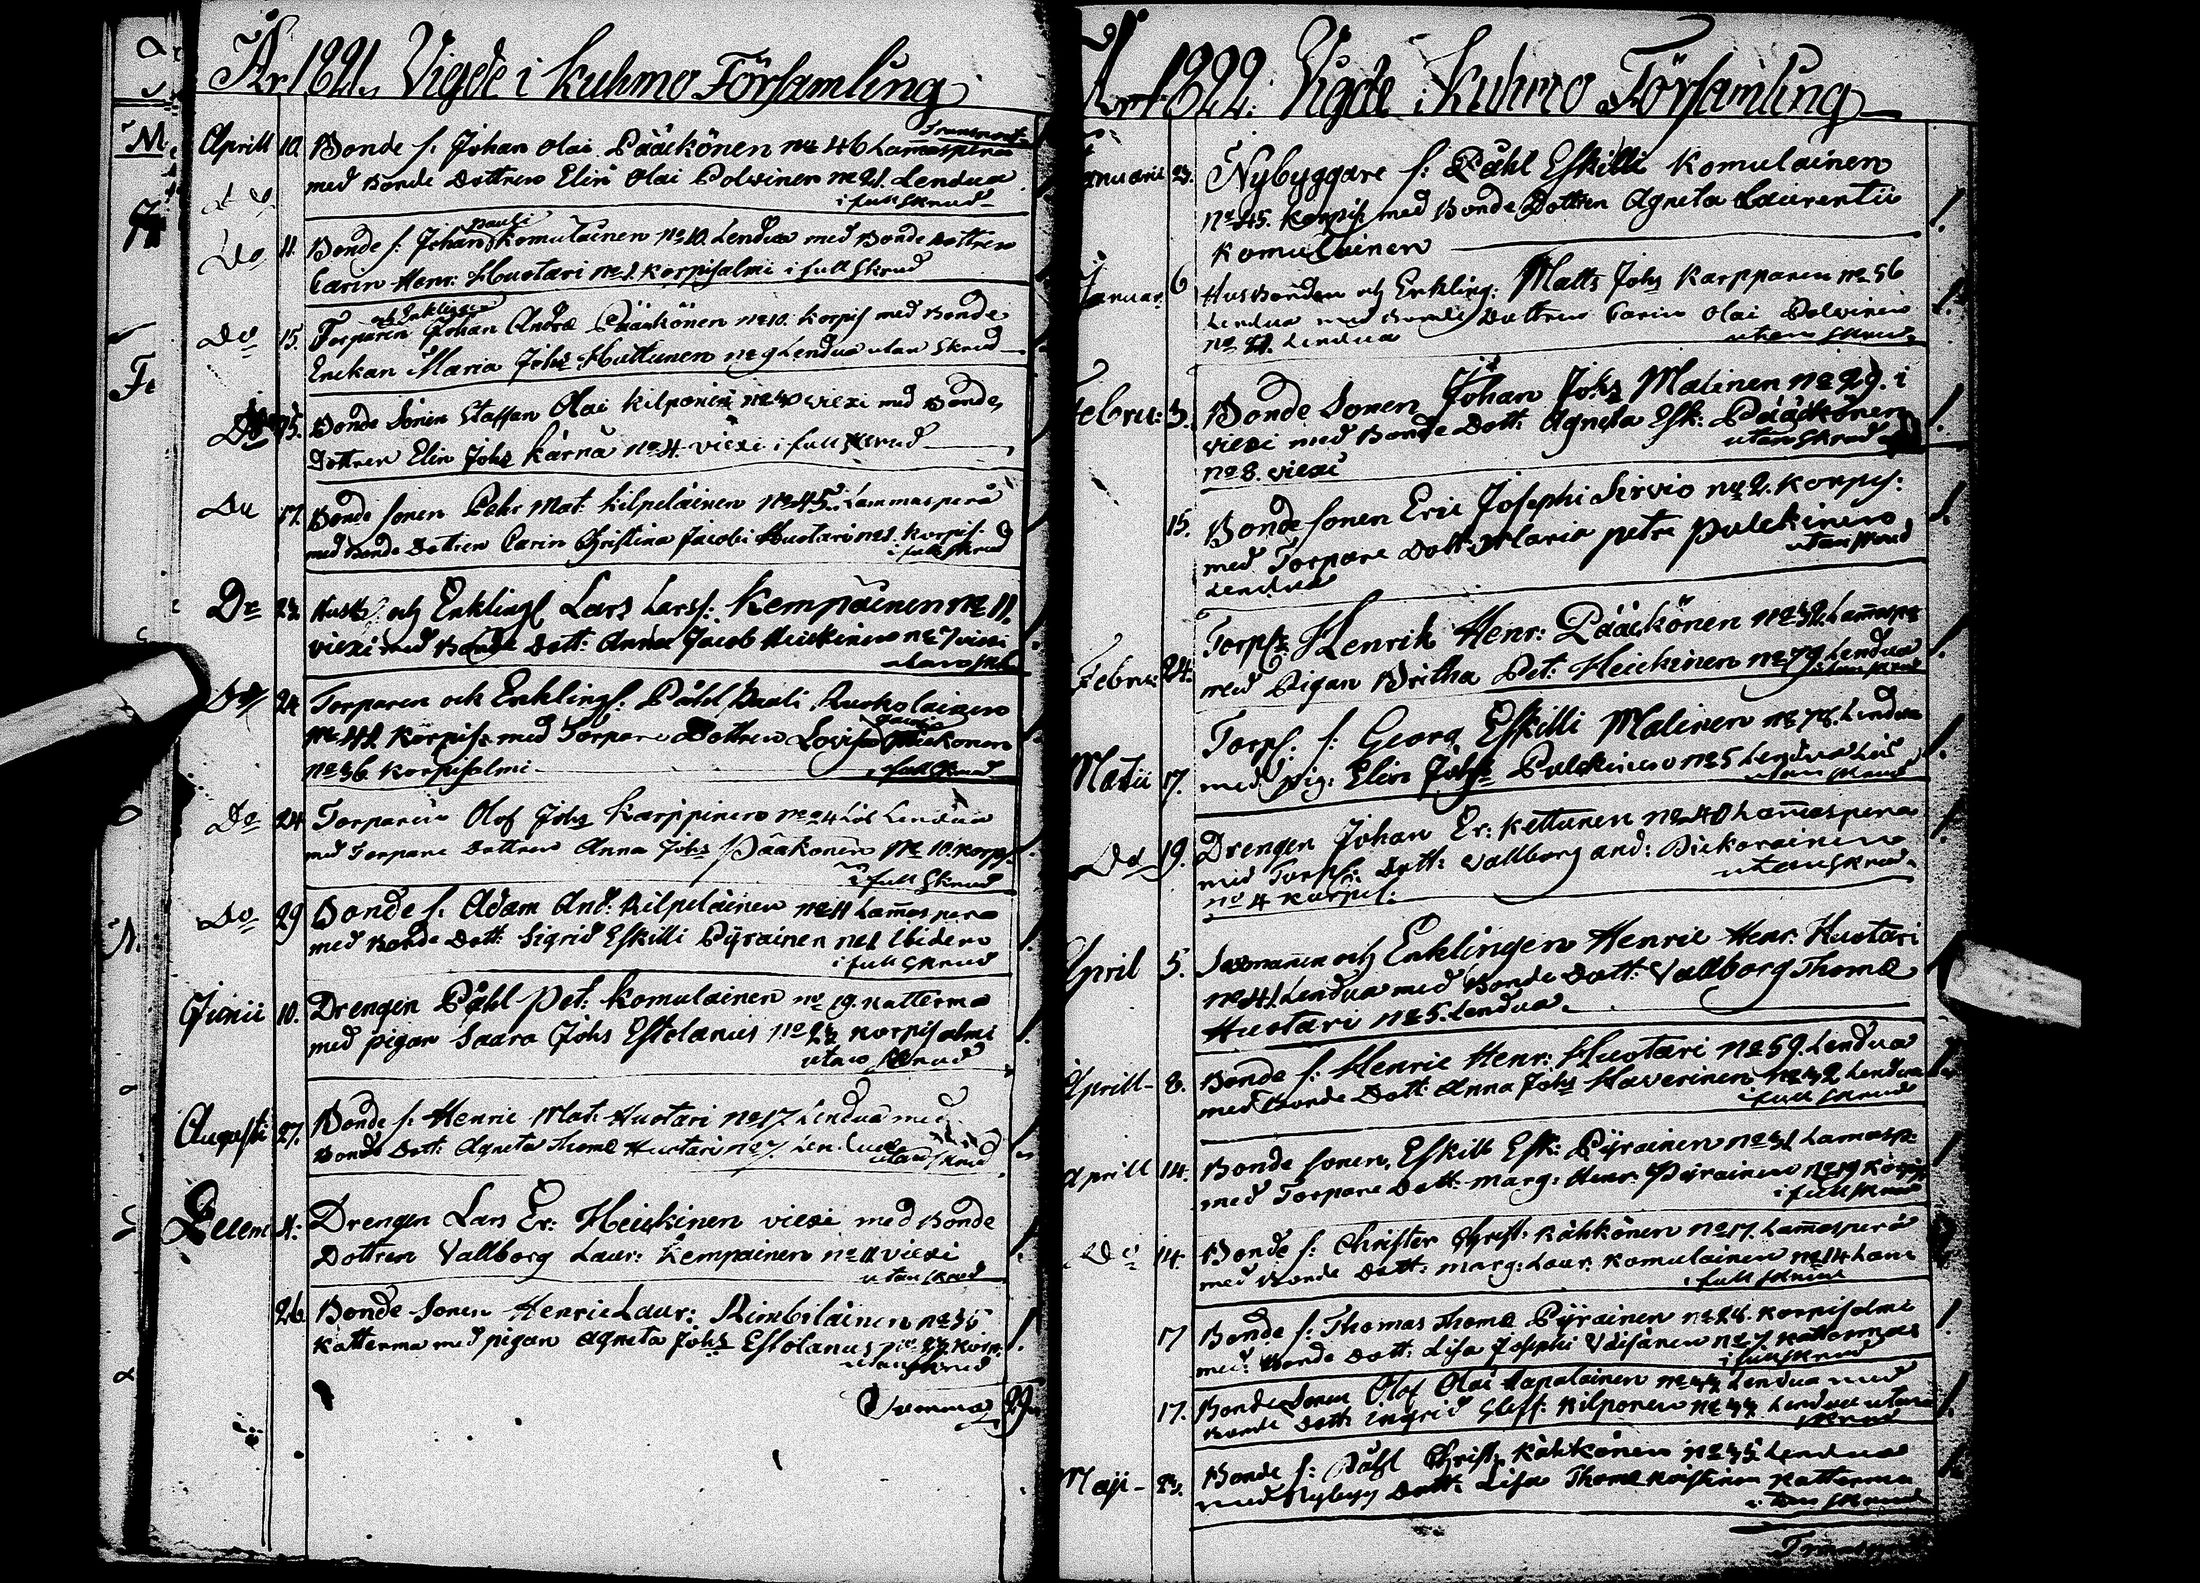 År 1821. Vigde i Kuhmo Församling
Transport
Aprill 10. Bonde s: Johan Olai Pääkönen No 46 Lam̄asperä
med Bonde Dottren Elin Olai Polvinen No 21. Lendua
i full skrud
Do 11. Bonde s: Johan Pauli Komulainen No 10. Lendua med Bonde Dottren
Carin Henr: Huotari No 1. Korpisalmi i full skrud
Do 15. Torparen och Enklingen Johan Andræ Pääkönen No 10. Korpis med Bonde
Enckan Maria Johs Huttunen No 9 Lendua utan skrud
Do 15. Bonde Sonen Staffan Olai Kilponen No 40 Viexi med Bonde
Dottren Elin Johs Kärnä No 4. Viexi i full skrud
Do 17. Bonde sonen Pehr Mat: Kilpeläinen No 45. Lammasperä
med Bonde Dottren Carin Christina Jacobi Huotari No 1. Korpis.
i full skrud
Do 23. Husb. och Enklingl Lars Larss: Kempainen No 11.
Viexi med Bonde Dott: Anna Jacob Heickinen No 7 Viexi
utan sk
Do 24 Torparen och Enklings: Påhl Pauli
No 41 Korpis: med Torpare Dottren Lovisa Pääkönen
No 36 Korpisalmi
i full skrud
Do 24 Torparen Olof Johs Karppinen No 24 Lendua
med Torpare Dottren Anna Johs Pääkönen No 10. Korp.
i full skrud
Do 29 Bonde s: Adam And: Kilpeläinen No 11 Lam̄aspera
med Bonde Dott: Sigrid Eskilli Pyrainen No 1 Ibidem
i full skrud
Junii 10. Drengen Påhl Pet: Komulainen No 19. Katterma
med pigan Saara Johs Estolanus No 23 Korpisalmi
utan skrud
Augusti 27. Bonde s: Henric Mat: Huotari No 17. Lendua med
Bonde Dott: Agneta Thomæ Huotari No 7. Lendua
utan skrud
Decem 4: Drengen Lars Er: Heickinen Viexi med Bonde
Dottren Vallborg Laur: Kempainen No 11 Viexi
utan skrud
26 Bonde Sonen Henric Laur: Rimbiläinen No 35
Katterma med pigan Agneta Johs Estolanus No 23. Korp.
utan skrud
Summa 29
År 1822. Vigde i Kuhmo Församling
Januarii 23. Nybyggare s: Påhl Eskilli Komulainen
No 45. Korpis: med Bonde Dottren Agneta Laurentii
Komulainen
Januar. 6 Husbonden och Enkling: Matts Johs Karppanen No 56
Lendua med Bonde Dottren Carin Olai Polvinen
No 21. Lendua
utan skrud
Febru: 3. Bonde Sonen Johan Johs Malinen No 29. i
Viexi med Bonde Dott: Agneta Esk: Pääkönen
No 8. Viexi
utan skrud
15. Bonde sonen Eric Josephi Sirvio No 2. Korpis:
med Torpare Dott: Maria Petri Pulckinen
Lendua
utan skrud
Febru: 24. Torps: Henrik Henr: Pääckönen No 32. Lam̄aspe
med Pigan Britha Pet: Heickinen No 79 Lendua
utan skrud
Matii 17. Torps. s: Georg Eskilli Malinen No 78. Lendua
med Pig: Elin Johs Pulckinen No 5 Lendua
utan skrud
Do 19. Drengen Johan Er: Kettunen No 40 Lam̄aspera
med Torps: Dott: Vallborg And: Pickarainen
No 4 Korpis:
utan skrud
April 5. och Enklingen Henric Henr: Huotari
No 41. Lendua med Bonde Dott: Vallborg Thomæ
Huotari No 5. Lendua.
Aprill 8. Bonde s: Henric Henr: Huotari No 59. Lendua
med Bonde Dott: Anna Johs Haverinen No 32 Lendua
i full skrud
Aprill 14. Bonde sonen Eskill Esk: Pyrainen No 31 Lamasp:
med Torpare Dott: Marg: Henr: Pyrainen No 19 Korpis
i full skrud
Do 14. Bonde s: Christer Christ: Kähkönen No 17. Lam̄asperä
med Bonde Dott: Marg: Laur: Komulainen No 14 Lam
i full skrud
17 Bonde s: Thomas Thomæ Pyrainen No 24. Korpisalmi
med Bonde Dott: Lisa Josephi Väisänen No 7 Kattermas
i full skrud
17. Bonde Sonen Olof Olai Hapalainen No 44 Lendua med
Bonde Dott: Ingrid Steff: Kilponen No 33 Lendua utan
skrud
Maji 23. Bonde s: Påhl Christ: Kähkönen No 35 Lendua
med Nybygg Dott: Lisa Thomæ Katterma
utan skrud
Transport